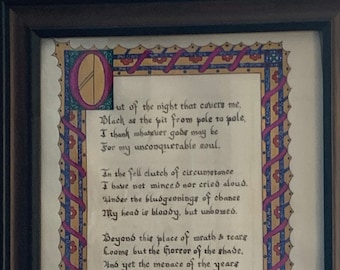 Out of the night that covers me,
Black as the pit from pole to pole,
I thank whatever gods may be
For my unconquerable soul.
In the fell clutch of circumstance
I have not winced nor cried aloud.
Under the bludgeonings of chance
My head is bloody, but unbowed.
Beyond this place of wrath & tears
Looms but the Horror of the shade,
And yet the menace of the years